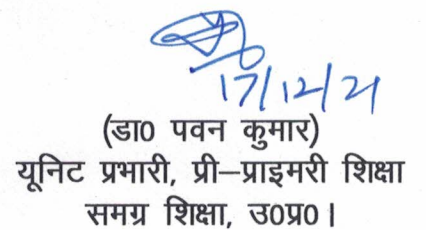 17/12/21
(डा0 पवन कुमार)
यूनिट प्रभारी, प्री–प्राइमरी शिक्षा
समग्र शिक्षा, उ0प्र0।